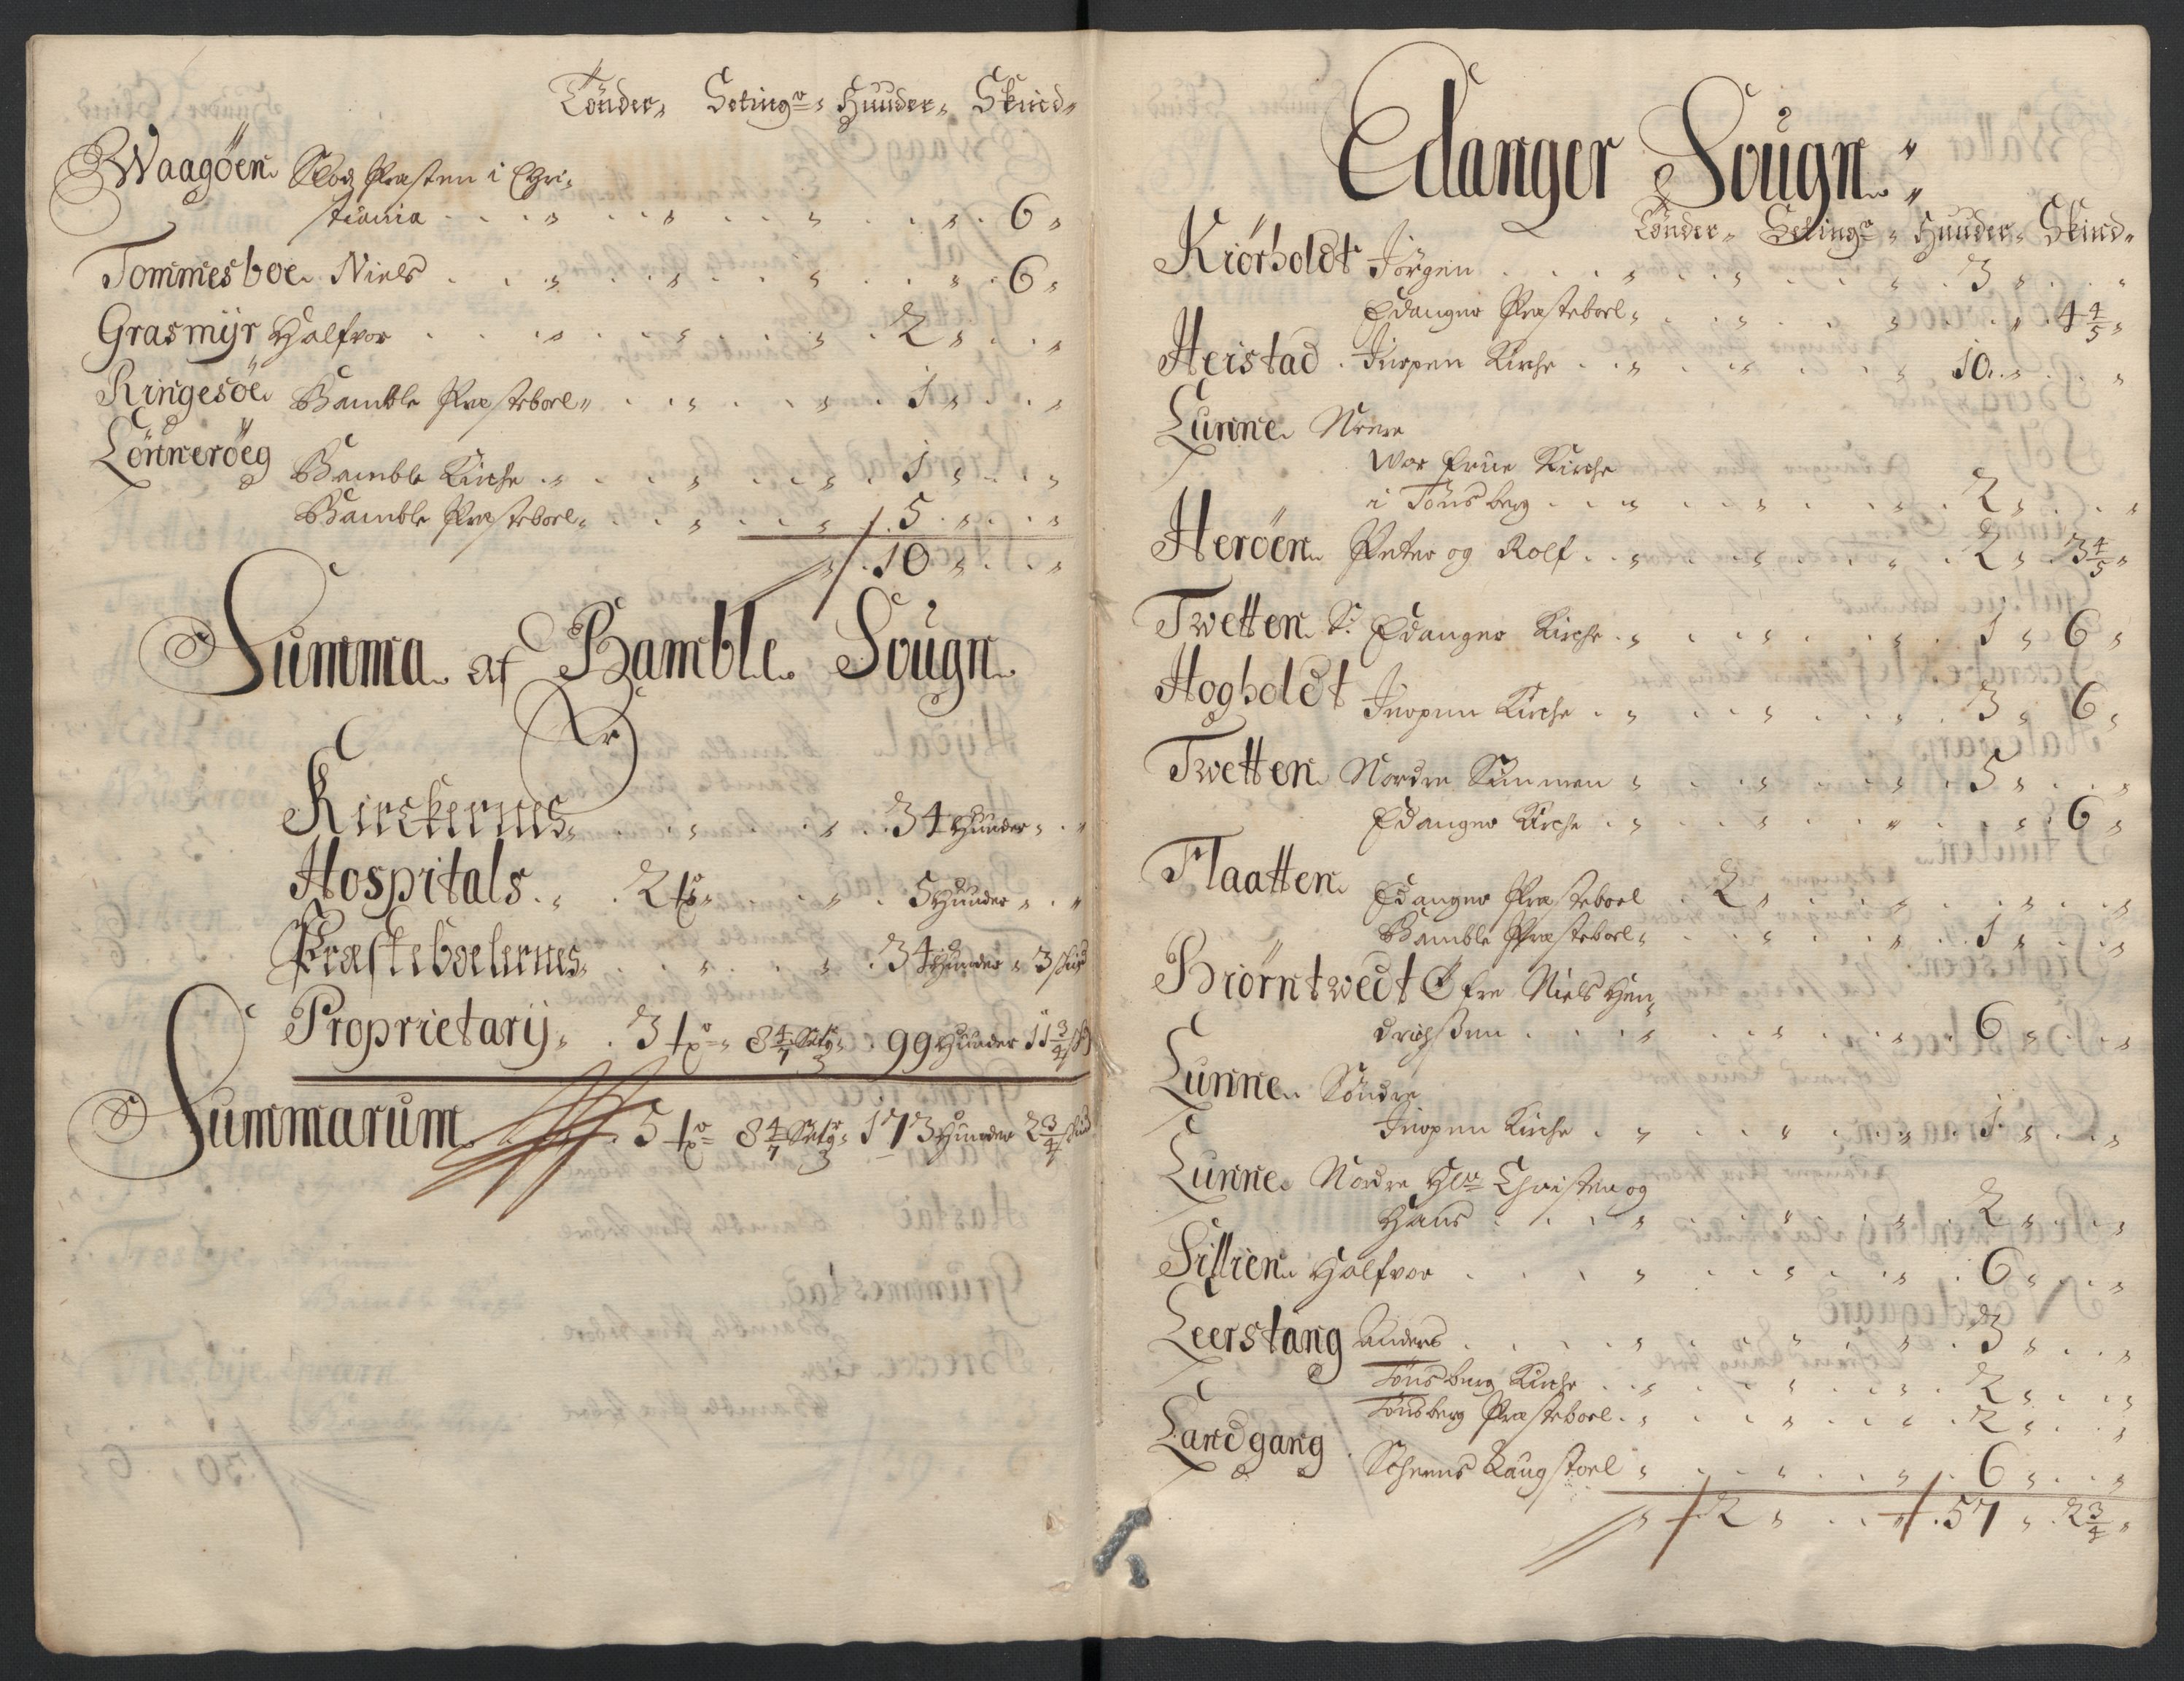 Tönder„ Setingr„ Huuder„ Skind„
Waagöen Slodz Præsten i Chri„
stiania . . „ . . „ . . „ . . „ . 6 „
Tommesboe Niels . . „ . . „ . . „ . . „ . 6 „
Grasmÿr Halfvor . . . „ . . „ . . „ . 2 „ . . „
Ringesöe Bamble Præsteboel „ . . „ . . „ . 1 „ . . „
Lönneröeg Bamble Kirche . „ . . „ . . „ . 1 „ . . „
Bamble Præsteboel „ . . „ . . „ . 5 . „ . . „
„ . 10 „ . . „
Summa af Bamble Sougn
Kirckernes „ . . „ . . „ . 34 Huuder „ . „
Hospitals . „ . 2 tr „ . . „ . 5 Huuder „ . „
Præsteboelernes „ . . „ . . „ . 34 Huuder „ 3 skind
Proprietarij „ . 3 tr „ 8 4/7 Setgr „ . 99 Huuder 11 3/4 sk
Summarum . 5 tr 8 4/7 Setgr „ 173 Huuder 2 3/4 skind
Edanger Sougn „
Tönder „ Setingr „ Huuder „ Skind „
Kiörholdt Jörgen . . . „ . . „ . . „ . 3 „ . . „
Edanger Præsteboel „ . . „ . . „ . . „ . 4 4/5 „
Heistad . Jnopen Kirche . . „ . . „ . . „ 10 . „ . . „
Lunne Nerre
Wor Frue Kirche
i Tönsberg . . . „ . . „ . . „ . 2 „ . . „
Heröen Peter og Rolf . . „ . . „ . . „ . 2 „ 3 4/5 „
Twetten S: Edanger Kirche . „ . . „ . . „ . 1 „ 6 „
Hogholdt Jnopen Kirche . „ . . „ . . „ . 3 „ 6 „
Twetten Nordre Simmen „ . . „ . . „ . 5 „ . . „
Edanger Kirche . „ . . „ . . „ . . „ . 6 „
Flaatten Edanger Præsteboel . 2 „ . . „ . . „ . . „
Bamble Præsteboel „ . . „ . . „ . 1 „ . . „
Biörntwedt Öfre Niels Hen„
drichßen . . . „ . . „ . . „ . 6 „ . . „
Lunne Söndre
Jnopen Kirche . „ . . „ . . „ . 1 „ . . „
Lunne Nordre Hr Christen og
Hans . . . „ . . „ . . „ . 2 „ . . „
Sillien Halfvor . . . „ . . „ . . „ . 6 „ . . „
Leerstang Anders . . . „ . . „ . . „ . 3 „ . . „
Tönsberg Kirche . . „ . . „ . . „ . 2 „ . . „
Tönsberg Præsteboel . „ . . „ . . „ . 2 „ . . „
Landgang . Scheens Laugstoel „ . . „ . . „ . 6 „ . . „
„ . 2 „ . . „ . 57 „ . 2 3/4 „